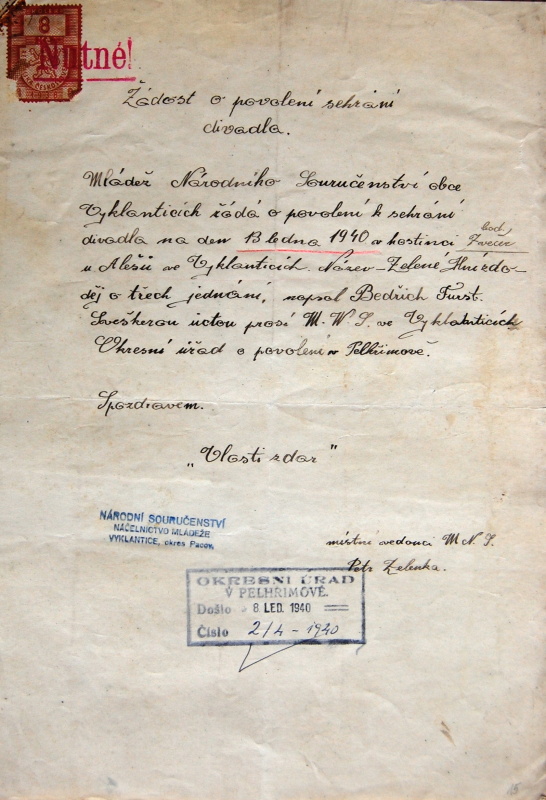 8
Nutné!
Žádost o povolení sehrání
divadla.
Mládež Národního Souručenství obce
Vyklanticích žádá o povolení k sehrání
hod.
divadla na den 13 ledna 1940 v hostinci 7 večer
u Alešů ve Vyklanticích. Název - Zelené Hnízdo -
děj o třech jednání, napsal Bedřich Furst.
Sveškerou úctou prosí M. N. S. ve Vyklanticích
Okresní úřad o povolení v Pelhřimově.
Spozdravem.
„Vlasti zdar"
NÁRODNÍ SOURUČENSTVÍ
NÁČELNICTVO MLÁDEŽE
VYKLANTICE, okres Pacov.
místní vedoucí M N S.
Petr Zelenka.
OKRESNÍ ÚŘAD
V PELHŘIMOVĚ.
Došlo 8 LED. 1940
Číslo 2/4 - 1940